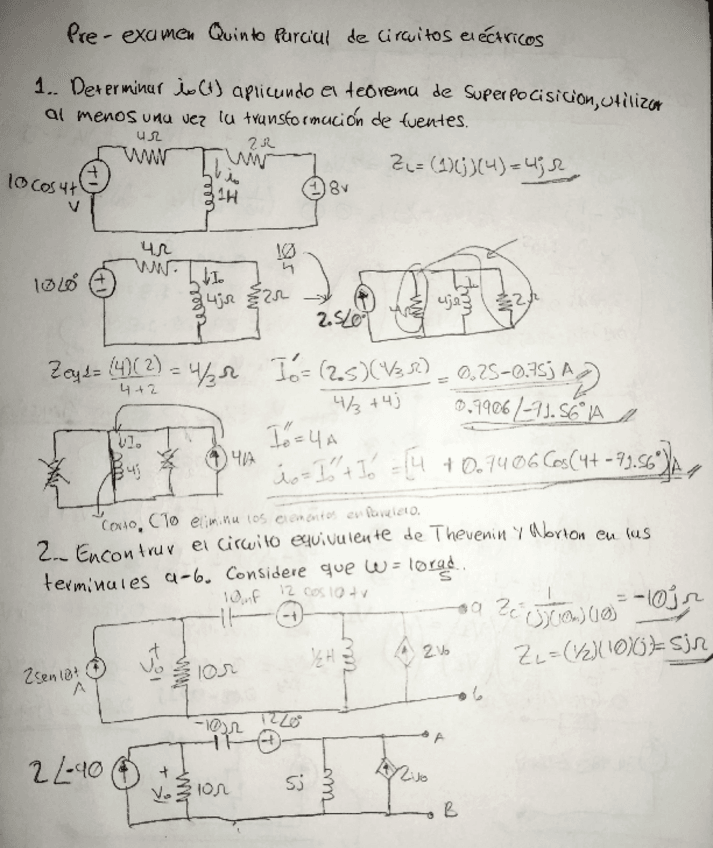 Pre-examen Quinto Parcial de circuitos eléctricos
1.. Determinar io(t) aplicando el teorema de Superpocisicion, utilizar
al menos una vez la transformación de fuentes.
4Ω 2Ω
10cos4t V
io
1H
8v
ZL=(1)(j)(4)=4jΩ
4Ω
10∠0°
Io
4jΩ
2Ω
10/4
2.5∠0°
4jΩ
2Ω
Zeq1= (4)(2)/4+2 = 4/3Ω
Io'= (2.5)(4/3Ω)/4/3+4j = 0.25-0.75j A
0.7906/-71.56° A
Io
4j
4A
Io''=4A
io=Io''+Io' =[4 + 0.7906 Cos(4t-71.56°)]A
Corto, CTO elimina los elementos en Paralelo.
2.. Encontrar el Circuito equivalente de Thevenin y Norton en las
terminales a-b. Considere que W = 10 rad/s.
10mf 12 cos10tv
2sen10t A
+
Vo
-
10Ω
½H
2Vo
a
b
Zc= 1/(j)(10m)(10) = -10jΩ
ZL=(1/2)(10)(j)=5jΩ
-10jΩ 12∠0°
2∠-90
+
Vo
-
10Ω
5j
2Vo
A
B